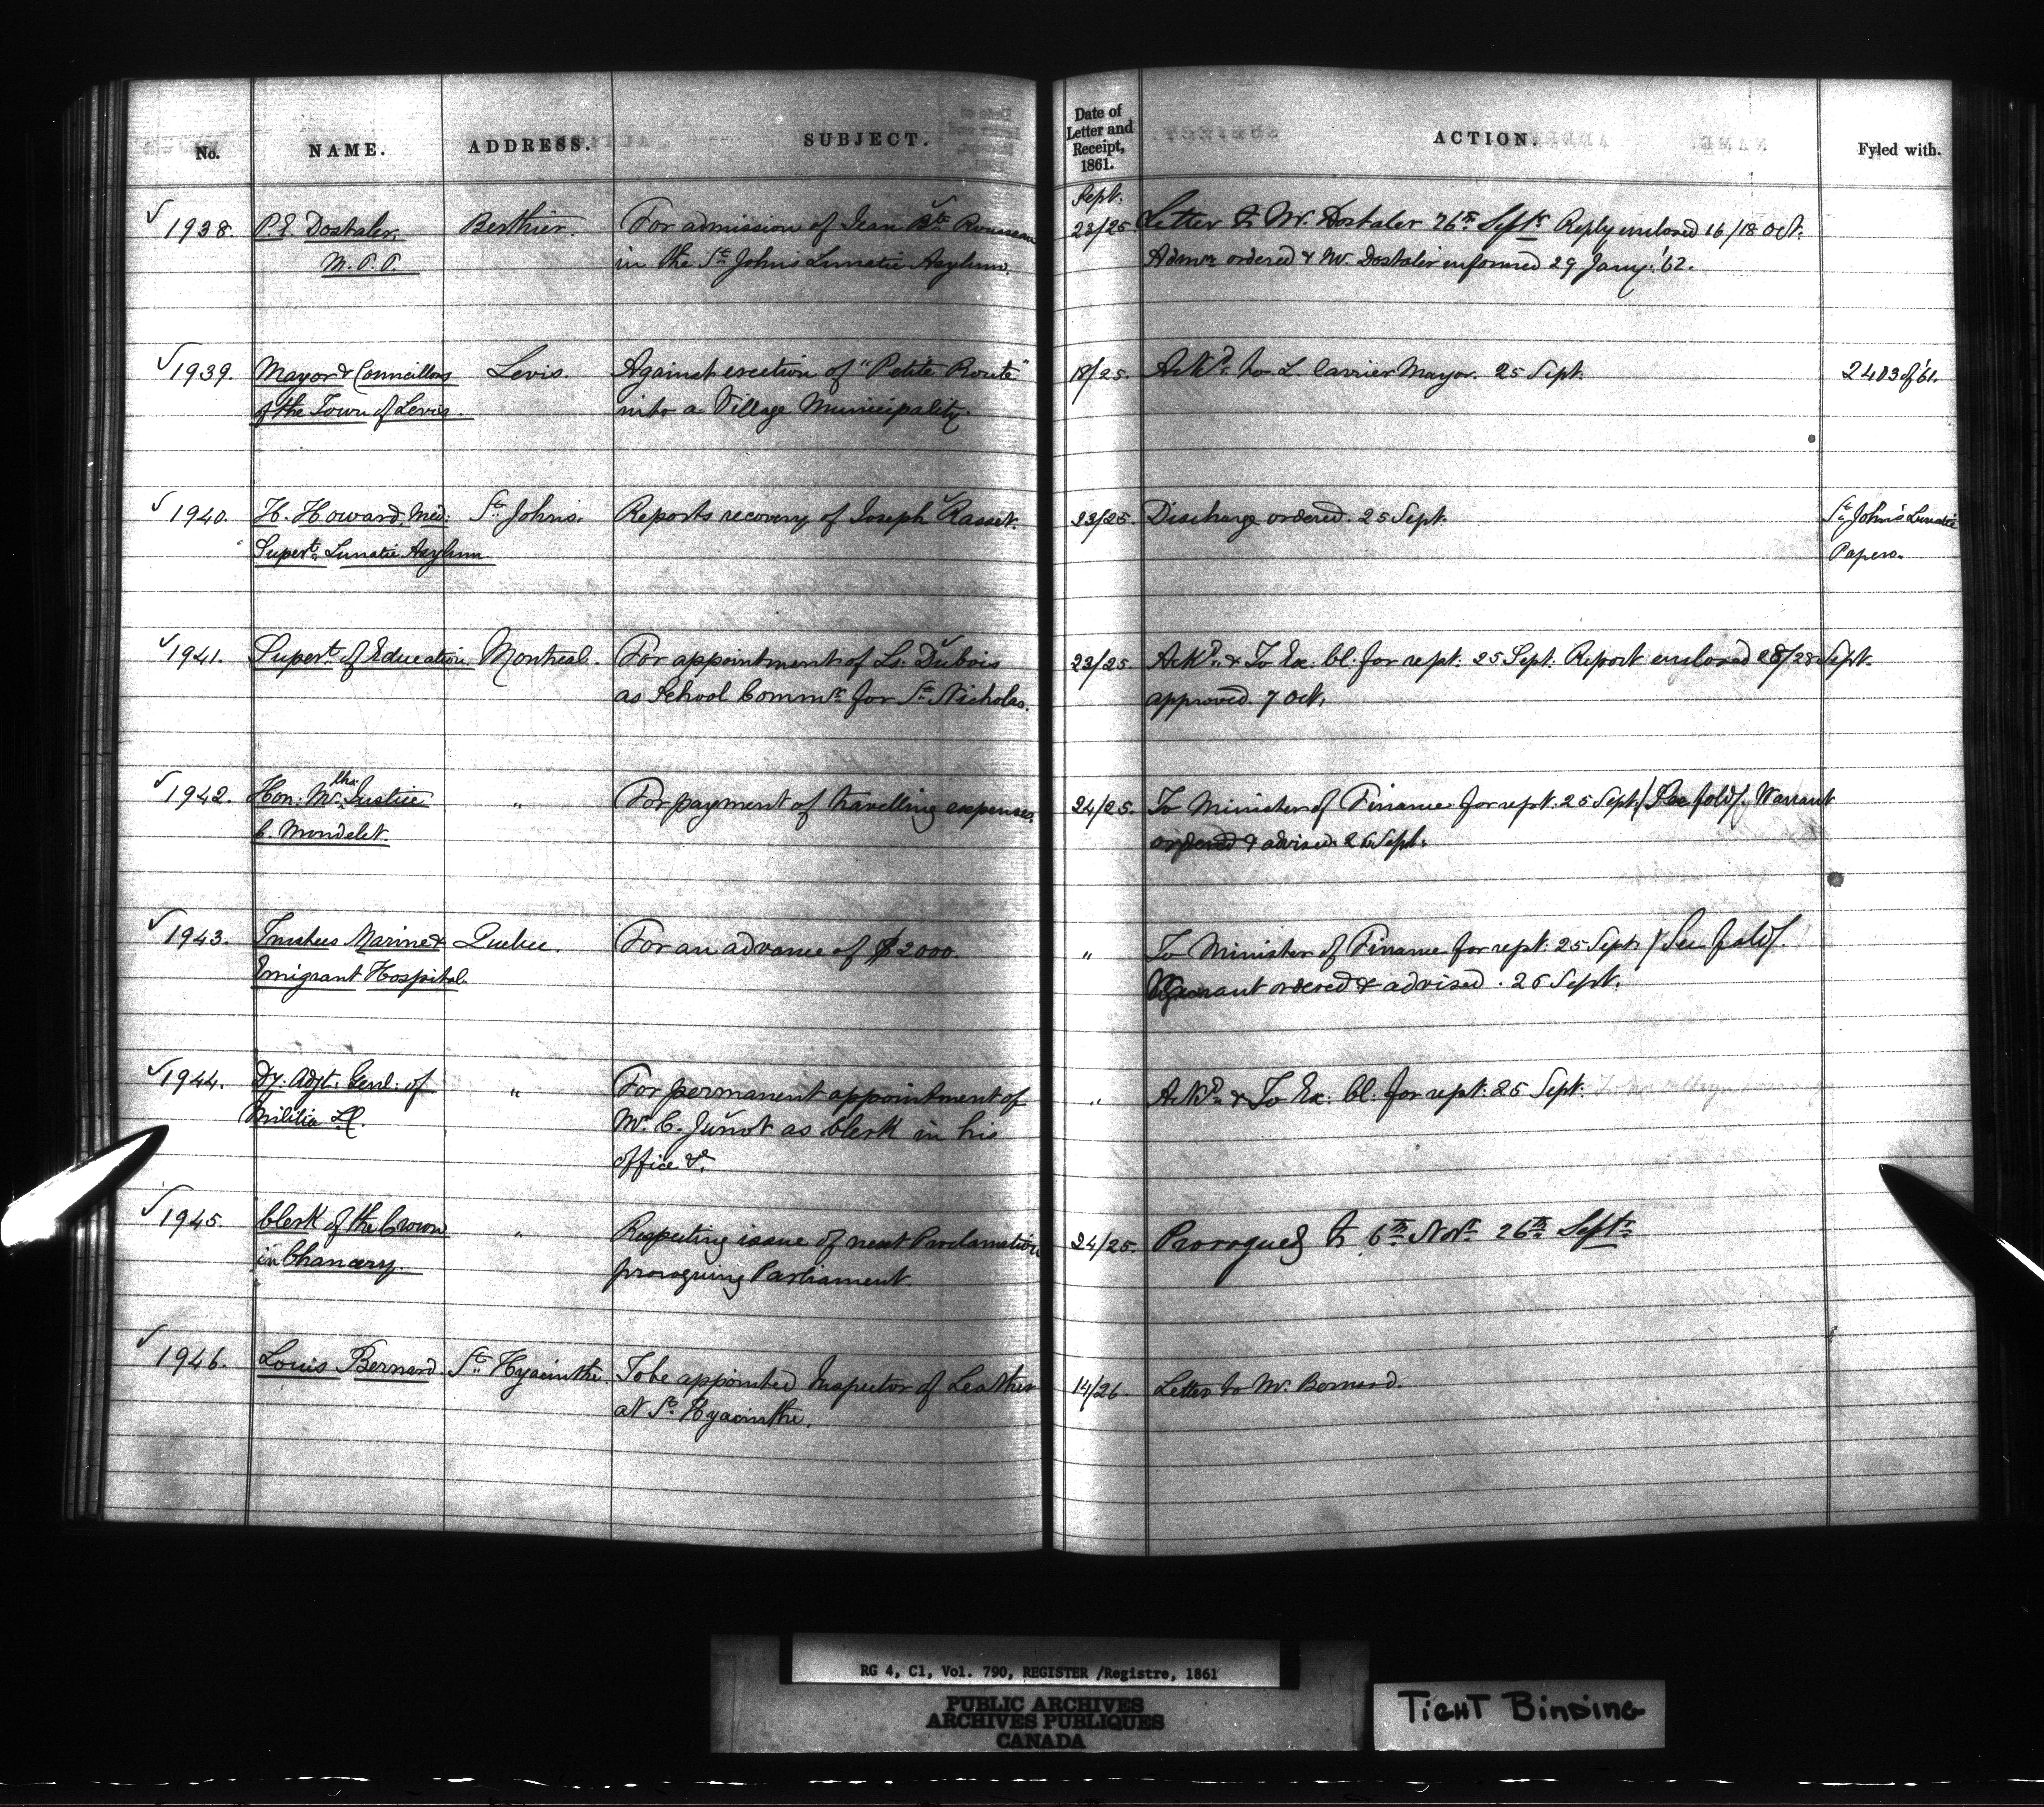 No. NAME. ADDRESS. SUBJECT. Date of Letter and Receipt, 1861. ACTION. Fyled with.
Sept.
1938. P. E. Dostaler, Berthier. For admission of Jean Bte Rousseau 23/25 Letter to Mr. Dostaler 26th Septr Reply enclosed 16/18 Oct.
M.P.P. in the St. Johns Lunatic Asylum. Admn ordered & Mr. Dostaler informed 29 Jany. '62.
1939. Mayor & Councillors Levis. Against erection of "Petite Route" 18/25. Ackd. to L. Carrier Mayor. 25 Sept. 2403 of '61.
of the Town of Levis. into a Village Municipality.
1940. H. Howard, Med: St. Johns. Reports recovery of Joseph Rasset. 23/25. Discharge ordered. 25 Sept. St. John's Lunatic
Supert. Lunatic Asylum Papers.
1941. Supert. of Education Montreal. For appointment of Ls. Dubois 23/25 Ackd. & To Ex. Cl. for rept. 25 Sept. Report enclosed 28/28 Sept.
as School Commr. for St. Nicholas. approved. 7 Oct.
1942. Hon: Mr. Justice " For payment of travelling expenses. 24/25. To Minister of Finance for rept. 25 Sept. / See fold /. Warrant
C. Mondelet. ordered & advised. 26 Sept.
1943. Trustees Marine & Quebec. For an advance of $2000. " To Minister of Finance for rept. 25 Sept. / See fold /.
Emigrant Hospital. Warrant ordered & advised. 26 Sept.
1944. Dy. Adjt. Genl. of " For permanent appointment of " Ackd. & To Ex. Cl. for rept. 25 Sept.
Militia L.C. Mr. C. Junot as Clerk in his
office &c.
1945. Clerk of the Crown " Respecting issue of next Proclamation 24/25. Prorogued to 6th Novr. 26th Septr.
in Chancery. proroguing Parliament.
1946. Louis Bernard. St. Hyacinthe. To be appointed Inspector of Leather 14/26. Letter to Mr. Bernard.
at St. Hyacinthe.
RG 4, C1, Vol. 790, REGISTER /Registre, 1861
PUBLIC ARCHIVES
ARCHIVES PUBLIQUES
CANADA
TIGHT BINDING